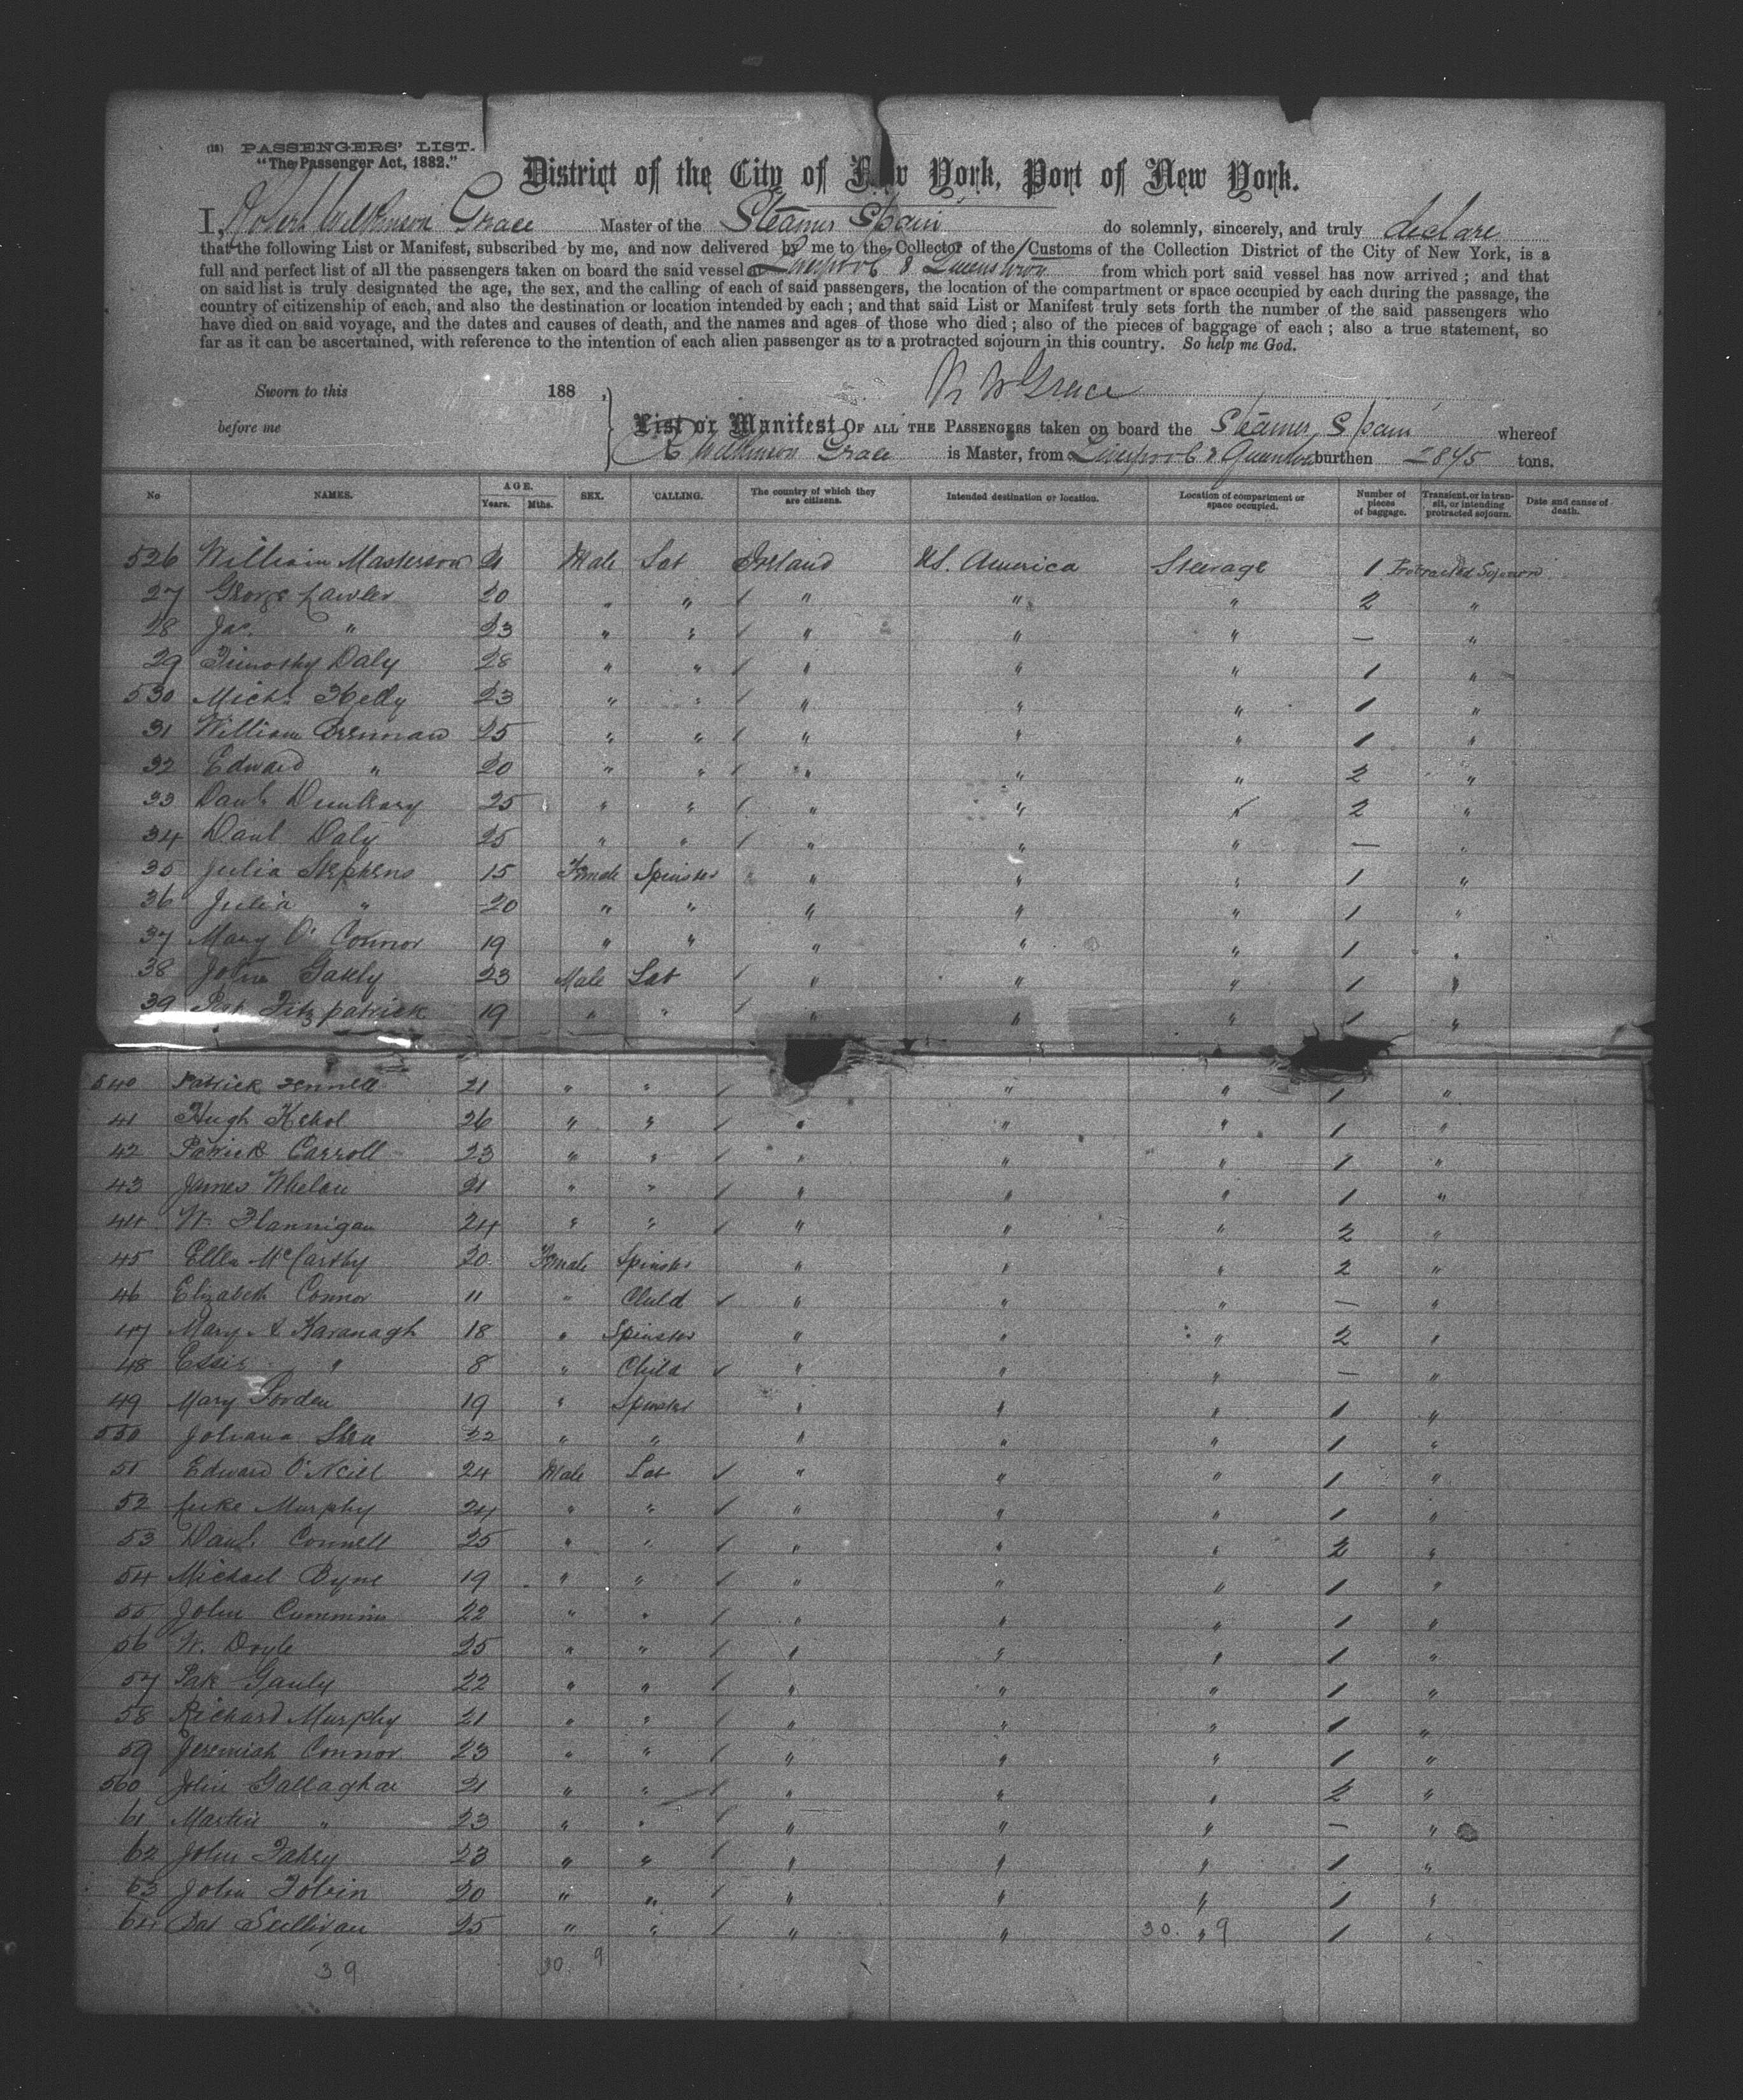 (18) PASSENGERS' LIST.
"The Passenger Act, 1882."
District of the City of New York, Port of New York.
I, Robert Wilkinson Grace Master of the Steamer Spain do solemnly, sincerely, and truly declare
that the following List or Manifest, subscribed by me, and now delivered by me to the Collector of the Customs of the Collection District of the City of New York, is a
full and perfect list of all the passengers taken on board the said vessel at Liverpool & Queenstown from which port said vessel has now arrived; and that
on said list is truly designated the age, the sex, and the calling of each of said passengers, the location of the compartment or space occupied by each during the passage, the
country of citizenship of each, and also the destination or location intended by each; and that said List or Manifest truly sets forth the number of the said passengers who
have died on said voyage, and the dates and causes of death, and the names and ages of those who died; also of the pieces of baggage of each; also a true statement, so
far as it can be ascertained, with reference to the intention of each alien passenger as to a protracted sojourn in this country. So help me God.
Sworn to this 188 , R W Grace
before me
List or Manifest OF ALL THE PASSENGERS taken on board the Steamer Spain whereof
R Wilkinson Grace is Master, from Liverpool & Queenstown burthen tons.
No NAMES. AGE. Years. Mths. SEX. CALLING. The country of which they are citizens. Intended destination or location. Location of compartment or space occupied. Number of pieces of baggage. Transient, or in transit, or intending protracted sojourn. Date and cause of death.
526 William Masterson 21 Male Lab Ireland US. America Steerage 1 Protracted Sojourn
27 George Lawler 20 " " / " " " 2 "
28 Jas. " 23 " " / " " " — "
29 Timothy Daly 28 " " / " " " 1 "
530 Michl. Kelly 23 " " / " " " 1 "
31 William Brennan 25 " " / " " " 1 "
32 Edward " 20 " " / " " " 2 "
33 Danl. 25 " " / " " " 2 "
34 Danl Daly 25 " " / " " " — "
35 Julia Stephens 15 Female Spinster " " " 1 "
36 Julia " 20 " " " " " 1 "
37 Mary O'Connor 19 " " " " " 1 "
38 John 23 Male Lab / " " " 1 "
39 Pat Fitzpatrick 19 " " / " " " 1 "
540 Patrick Fennell 21 " " / " " 1 "
41 Hugh 26 " " / " " " 1 "
42 Patrick Carroll 23 " " / " " " 1 "
43 James Whelan 21 " " / " " " 1 "
44 W. Flannigan 24 " " / " " " 2 "
45 Ellen McCarthy 20 Female Spinster " " " 2 "
46 Elizabeth Connor 11 " Child / " " " — "
47 Mary A Kavanagh 18 " Spinster " " " 2 "
48 Essie " 8 " Child / " " " — "
49 Mary 19 " Spinster " " " 1 "
550 Johana Shea 22 " " " " " 1 "
51 Edward O'Neill 24 Male Lab / " " " 1 "
52 Luke Murphy 24 " " / " " " 1 "
53 Danl. Connell 25 " " / " " " 2 "
54 Michael Byrne 19 " " / " " " 1 "
55 John Cummins 22 " " / " " " 1 "
56 W. Doyle 25 " " / " " " 1 "
57 Pat Gauly 22 " " / " " " 1 "
58 Richard Murphy 21 " " / " " " 1 "
59 Jeremiah Connor 23 " " / " " " 1 "
560 John Gallagher 21 " " / " " " 2 "
61 Martin " 23 " " / " " " — "
62 John Fahey 23 " " / " " " 1 "
63 John Tobin 20 " " / " " " 1 "
64 Pat Sullivan 25 " " / " " 30. " 9 1 "
39 30. 9